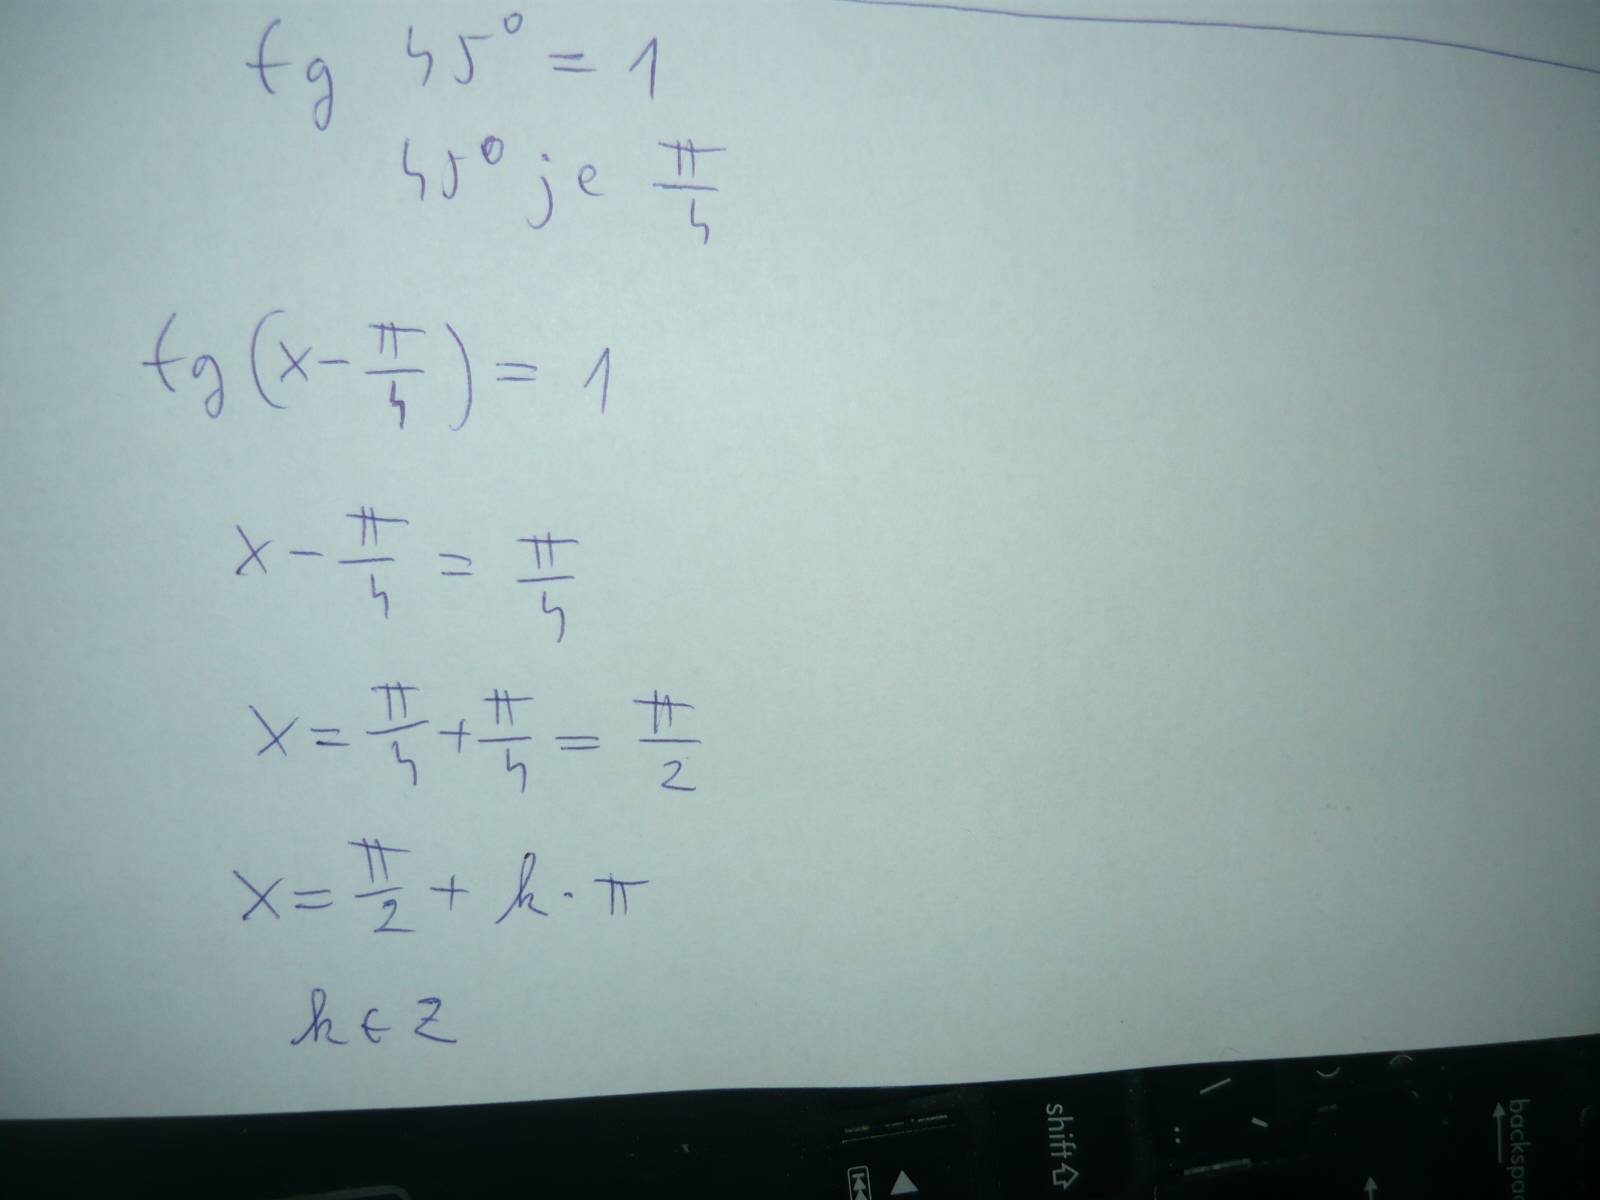 tg 45° = 1
45° je π/4
tg(x - π/4) = 1
x - π/4 = π/4
x = π/4 + π/4 = π/2
x = π/2 + k · π
k ∈ Z
shift